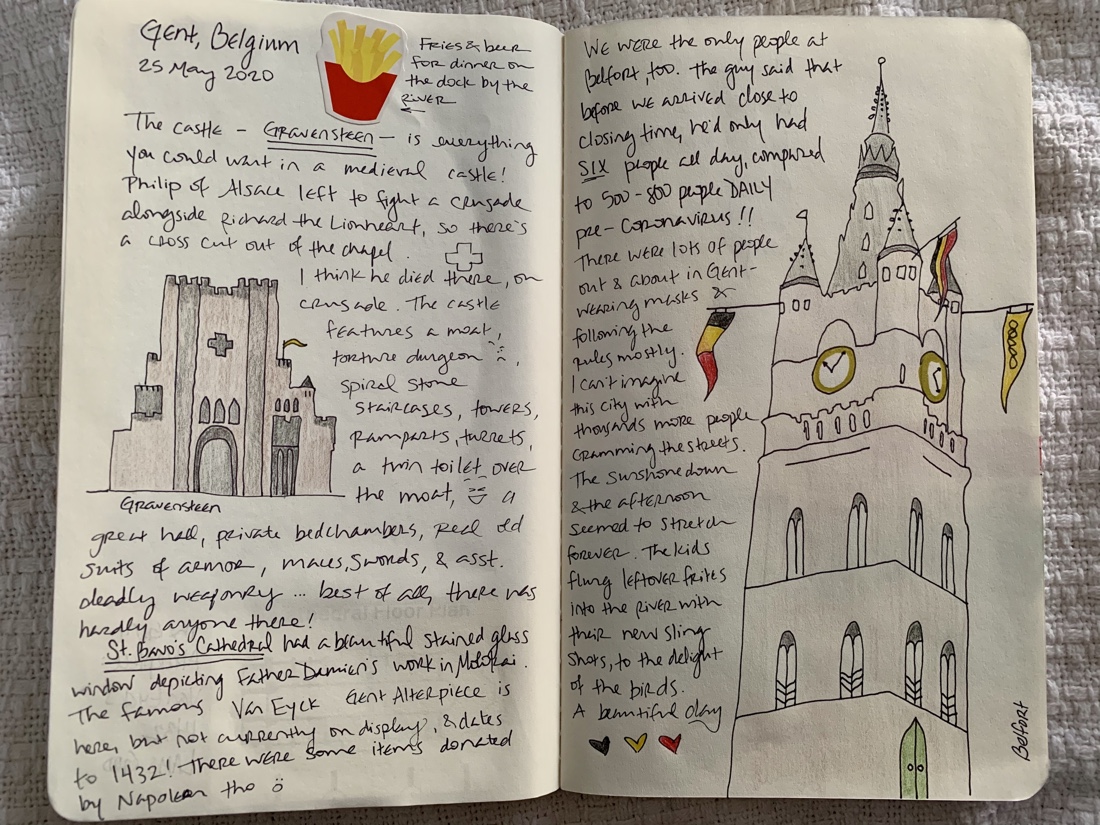 Gent, Belgium
25 May 2020
Fries & beer
for dinner on
the dock by the
river
The castle – Gravensteen – is everything
you could want in a medieval castle!
Philip of Alsace left to fight a crusade
alongside Richard the Lionheart, so there's
a cross cut out of the chapel.
I think he died there, on
crusade. The castle
features a moat,
torture dungeon
spiral stone
staircases, towers,
ramparts, turrets,
a twin toilet over
the moat, a
Gravensteen
great hall, private bedchambers, real old
suits of armor, maces, swords, & asst.
deadly weaponry ... best of all, there was
hardly anyone there!
St. Bavo's Cathedral had a beautiful stained glass
window depicting Father Damien's work in Molokai.
The famous Van Eyck Gent Alterpiece is
here, but not currently on display, & dates
to 1432! There were some items donated
by Napoleon tho
We were the only people at
Belfort, too. The guy said that
before we arrived close to
closing time, he'd only had
SIX people all day, compared
to 500-800 people DAILY
pre-Coronavirus!!
There were lots of people
out & about in Gent-
wearing masks &
following the
rules mostly.
I can't imagine
this city with
thousands more people
cramming the streets.
The sun shone down
& the afternoon
seemed to stretch
forever. The kids
flung leftover frites
into the river with
their new sling
shots, to the delight
of the birds.
A beautiful day
Belfort